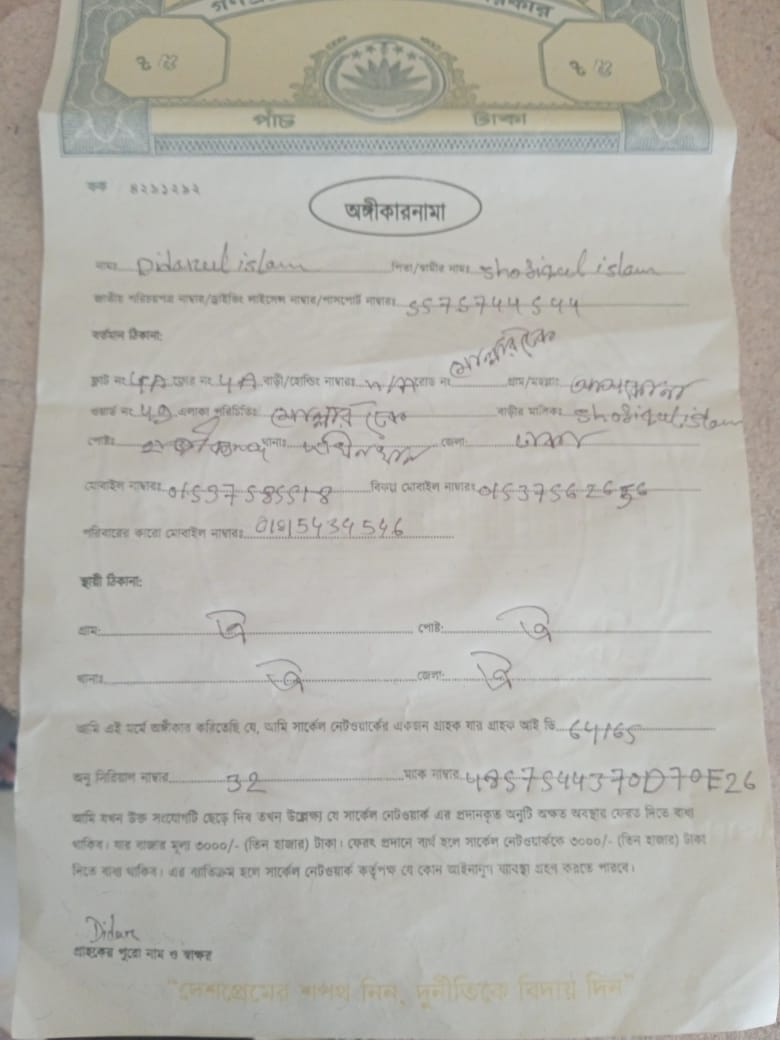 ৳ ৫
৳ ৫
পাঁচ টাকা
কক ৪২১১২১২
অঙ্গীকারনামা
নামঃ Didarul islam পিতা/স্বামীর নামঃ Shofiqul islam
জাতীয় পরিচয়পত্র নাম্বার/ড্রাইভিং লাইসেন্স নাম্বার/পাসপোর্ট নাম্বারঃ 5575744544
বর্তমান ঠিকানা:
ফ্লাট নং 4A ফ্লোর নং 4A বাড়ী/হোল্ডিং নাম্বারঃ N/A রোড নং মোল্লারটেক গ্রাম/মহল্লাঃ
ওয়ার্ড নং 49 এলাকা পরিচিতিঃ মোল্লার টেক বাড়ীর মালিকঃ Shofiqul islam
পোষ্টঃ থানাঃ দক্ষিনখান জেলাঃ ঢাকা
মোবাইল নাম্বারঃ বিকল্প মোবাইল নাম্বারঃ
পরিবারের কারো মোবাইল নাম্বারঃ 01815434546
স্থায়ী ঠিকানা:
গ্রাম: ঐ পোষ্ট: ঐ
থানাঃ ঐ জেলা: ঐ
আমি এই মর্মে অঙ্গীকার করিতেছি যে, আমি সার্কেল নেটওয়ার্কের একজন গ্রাহক যার গ্রাহক আই ডি 64165
অনু সিরিয়াল নাম্বার 32 ম্যাক নাম্বার 4857544370D70E26
আমি যখন উক্ত সংযোগটি ছেড়ে দিব তখন উল্লেখ্য যে সার্কেল নেটওয়ার্ক এর প্রদানকৃত অনুটি অক্ষত অবস্থায় ফেরত দিতে বাধ্য
থাকিব। যার বাজার মূল্য ৩০০০/- (তিন হাজার) টাকা। ফেরৎ প্রদানে ব্যর্থ হলে সার্কেল নেটওয়ার্ককে ৩০০০/- (তিন হাজার) টাকা
দিতে বাধ্য থাকিব। এর ব্যতিক্রম হলে সার্কেল নেটওয়ার্ক কর্তৃপক্ষ যে কোন আইনানুগ ব্যবস্থা গ্রহন করতে পারবে।
Didar
গ্রাহকের পুরো নাম ও স্বাক্ষর
"দেশপ্রেমের শপথ নিন, দুর্নীতিকে বিদায় দিন"